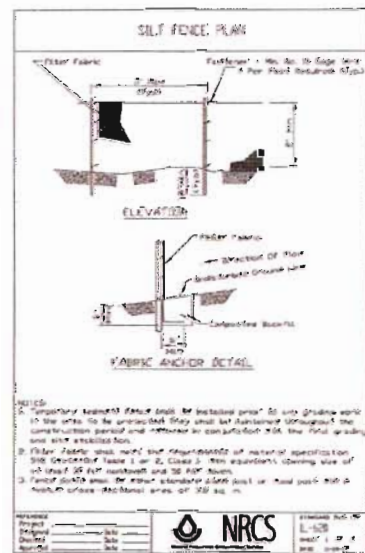 SILT FENCE PLAN
Filter Fabric
Fastener - Min. No. 16 Gage Wire
4 Per Post Required (Typ.)
ELEVATION
Filter Fabric
Direction Of Flow
Undisturbed Ground Line
Compacted Backfill
FABRIC ANCHOR DETAIL
NOTES:
1. Temporary sediment fence shall be installed prior to any grading work
in the area to be protected. They shall be maintained throughout the
construction period and removed in conjunction with the final grading
and site stabilization.
2. Filter fabric shall meet the requirements of material specification
592 Geotextile Table 1 or 2, Class I with equivalent opening size of
at least 30 for nonwoven and 50 for woven.
3. Fence posts shall be either standard steel post or wood post with a
minimum cross-sectional area of 3.0 sq. in.
REFERENCE
Project
Designed Date
Checked Date
Approved Date
NRCS
Natural Resources Conservation Service
STANDARD DWG. NO.
IL-620